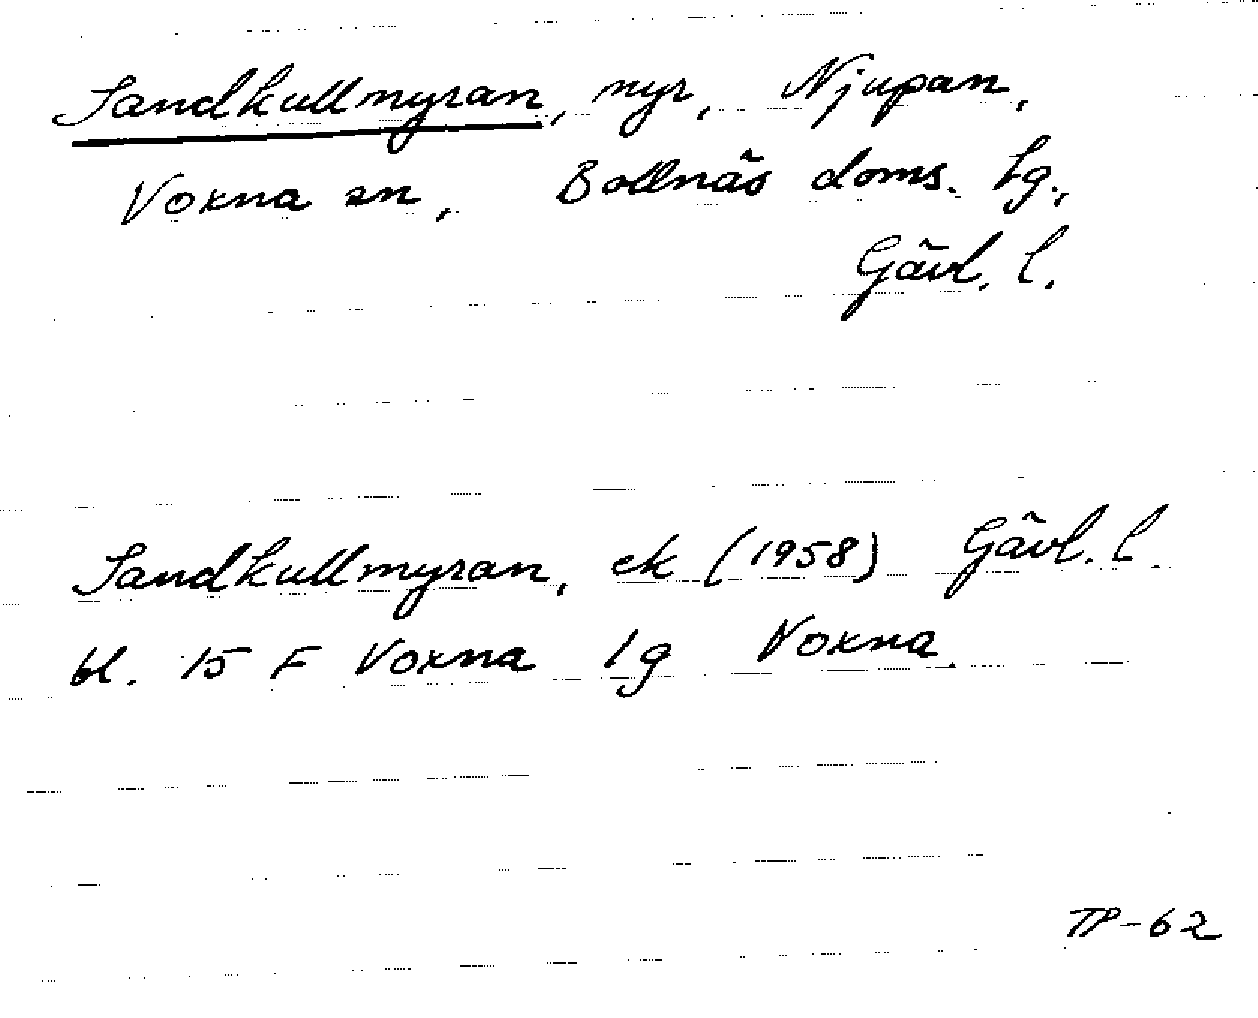 Sandkullmyran, myr, Njupan,
Voxna sn, Bollnäs doms. hg.,
Gävl. l.
Sandkullmyran, ek (1958) Gävl. l.
bl. 15 F Voxna 1g Voxna
TP-62